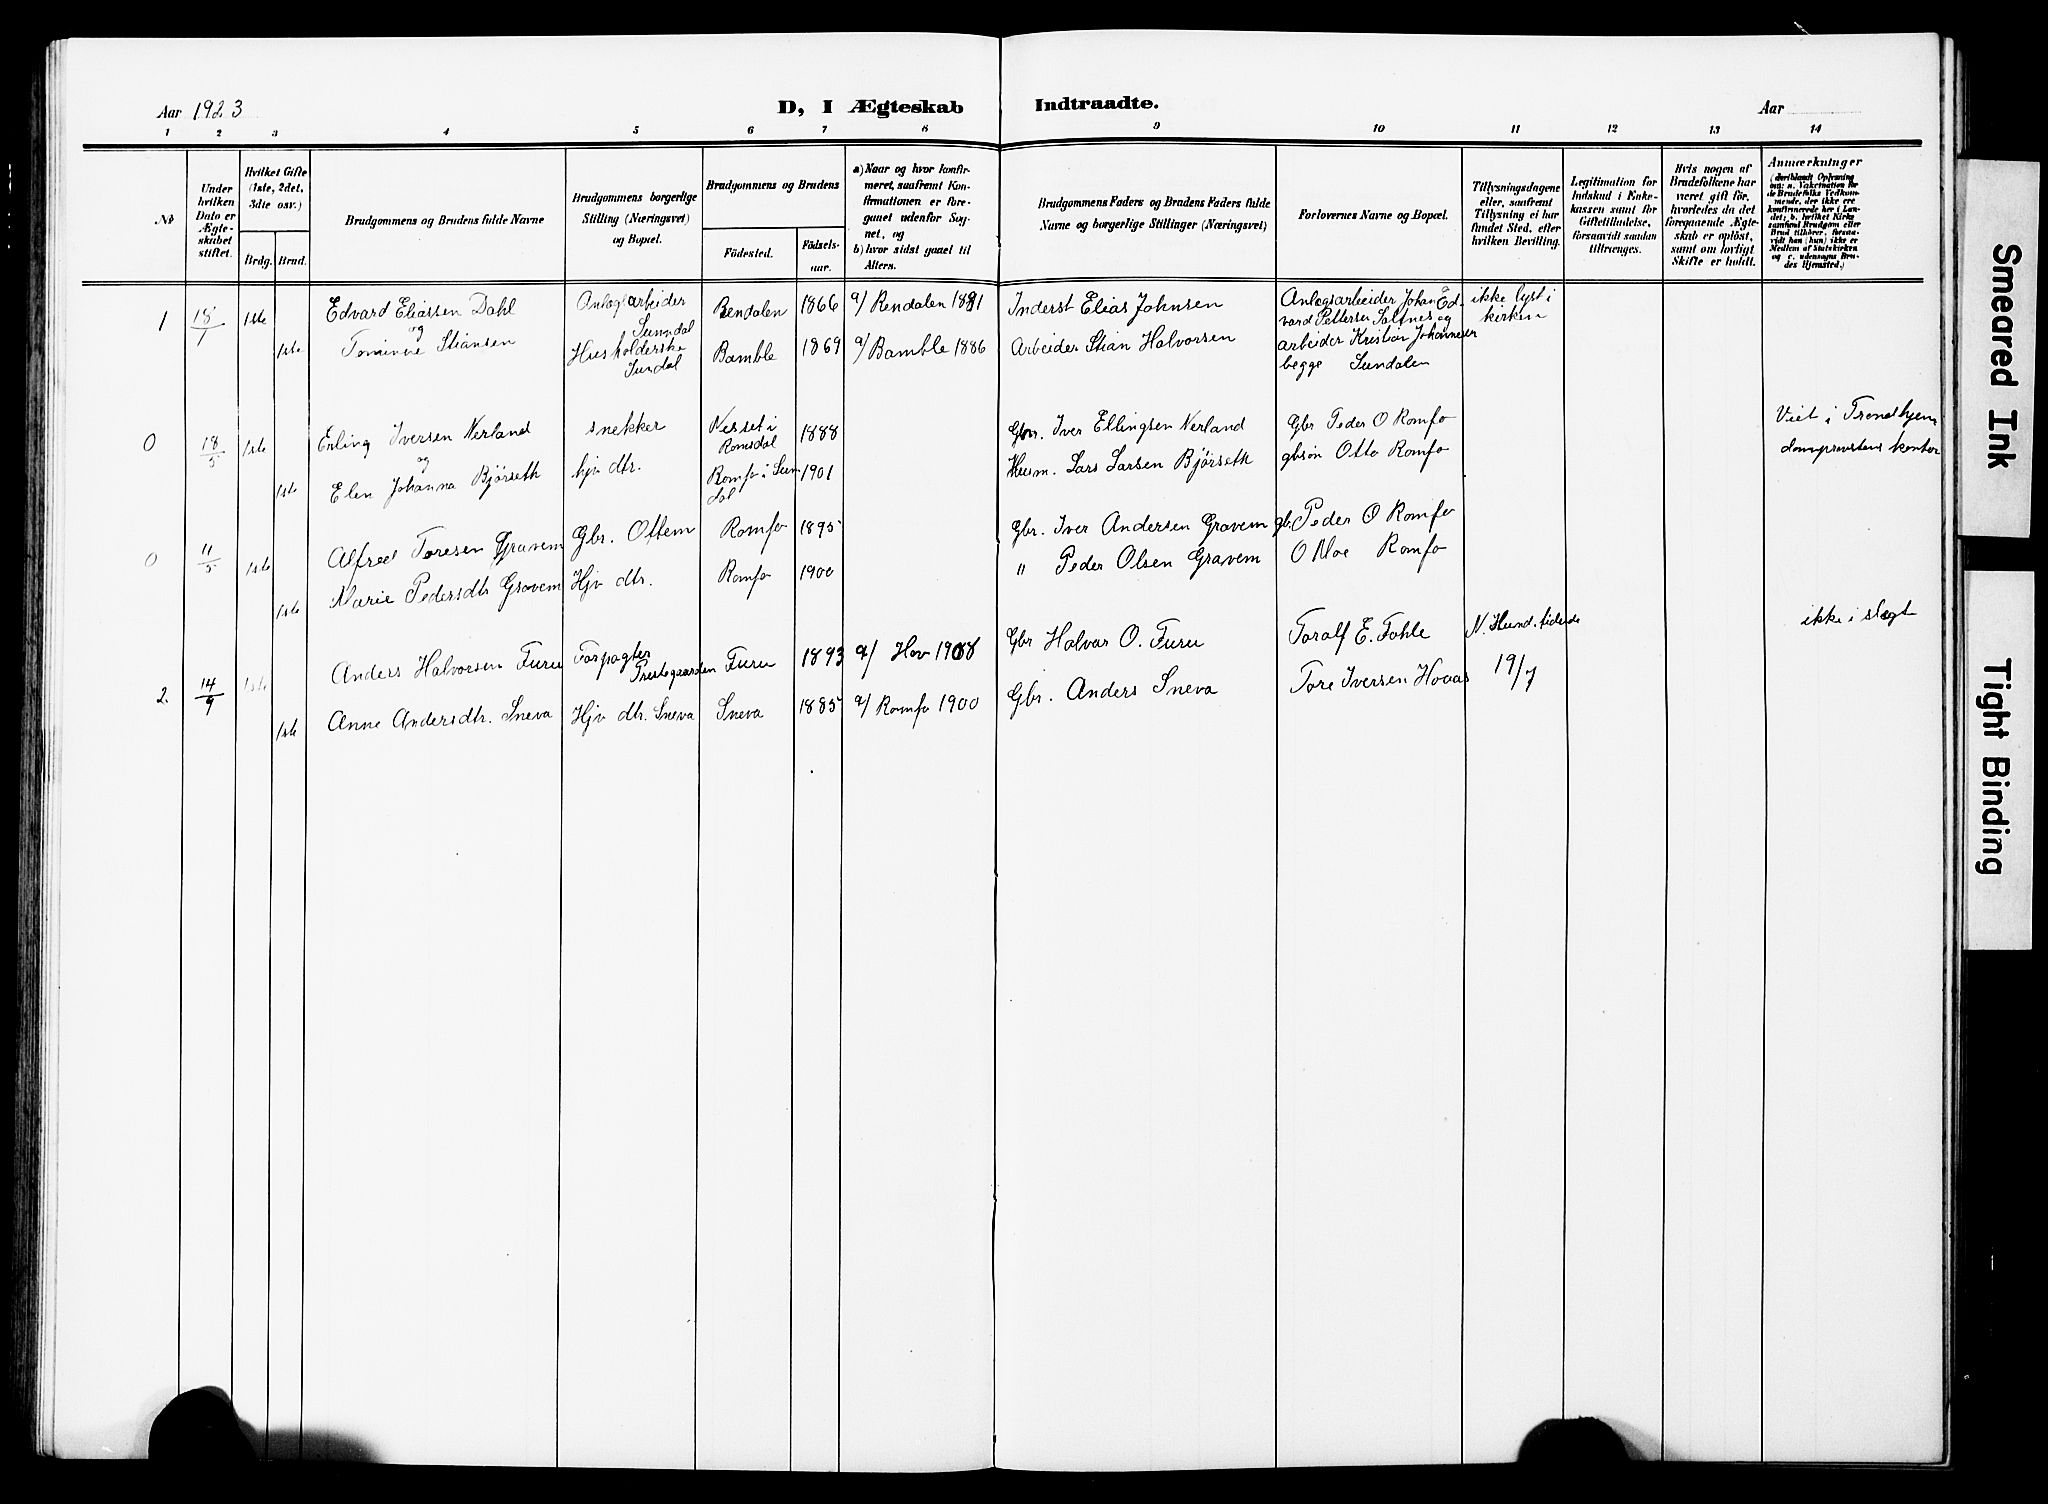 Aar 1923
D, I Ægteskab Indtraadte.
Aar
1 2 3 4 5 6 7 8 9 10 11 12 13 14
Nr
Under hvilken Dato er Ægteskabet stiftet.
Hvilket Gifte (1ste, 2det, 3dte osv.)
Brdg. Brud.
Brudgommens og Brudens fulde Navne
Brudgommens borgerlige Stilling (Næringsvei) og Bopæl.
Brudgommens og Brudens
Födested. Födsels-aar.
a) Naar og hvor konfir-
meret, saafremt Kon-
firmationen er fore-
gaaet udenfor Sog-
net, og
b) hvor sidst gaaet til
Alters.
Brudgommens Faders og Brudens Faders fulde
Navne og borgerlige Stillinger (Næringsvei)
Forlovernes Navne og Bopæl.
Tillysningsdagene
eller, saafremt
Tillysning ei har
fundet Sted, efter
hvilken Bevilling.
Legitimation for
Indskud i Enke-
kassen samt for
Giftetilladelse,
forsaavidt saadan
tiltrænges.
Hvis nogen af
Brudefolkene har
været gift för,
hvorledes da det
foregaaende Ægte-
skab er oplöst,
samt om lovligt
Skifte er holdt.
Anmærkninger
(deriblandt Oplysning
om: a. Vakcination for
de Brudefolks Vedkom-
mende, der ikke ere
konfirmerede her i Lan-
det; b. hvilket Kirke
samfund Brudgom eller
Brud tilhörer, forsaa-
vidt han (hun) ikke er
Medlem af Statskirken
og c. udensogns Bru-
des Hjemsted.)
1 18/1 1ste Edvard Eliassen Dahl Anlegsarbeider Sunndal Rendalen 1866 a/ Rendalen 1881 Inderst Elias Johnsen Anlegsarbeider Johan Ed-
vard Pettersen Saltnes og ikke lyst i kirken
og
1ste Tomine Stiansen Husholderske Sundal Bamble 1869 a/ Bamble 1886 Arbeider Stian Halvorsen arbeider Kristian Johannesen
begge Sundalen
0 18/5 1ste Erling Iversen Nerland snekker Nesset i Romsdal 1888 Gbr. Iver Ellingsen Nerland Gbr Peder O Romfo Viet i Trondhjem
domprovstens kontor
og
1ste Elen Johanna Bjørseth hjv dtr. Romfo i Sun
dal 1901 Husm. Lars Larsen Bjørseth gbsøn Otto Romfo
0 11/5 1ste Alfred Toresen Gravem Gbr. Ottem Romfo 1895 Gbr. Iver Andersen Gravem gb. Peder O Romfo
1ste Marie Pedersdtr Gravem Hjv dtr. Romfo 1900 " Peder Olsen Gravem O Moe Romfo
2. 14/9 1ste Anders Halvorsen Furu Forpagter Prestegaarden Furu 1893 a/ Hov 1908 Gbr Halvar O. Furu Toralf E. Fohle ikke i slegt
1ste Anne Andersdtr. Sneva Hjv dtr. Sneva Sneva 1885 a/ Romfo 1900 Gbr. Anders Sneva Tore Iversen Hovas 19/7
Smeared Ink
Tight Binding